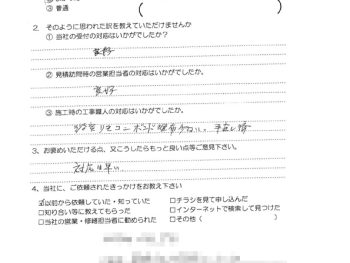 ③ 普通
2．そのように思われた訳を教えていただけませんか
① 当社の受付の対応はいかがでしたか？
良好
② 見積訪問時の営業担当者の対応はいかがでしたか。
良好
③ 施工時の工事職人の対応はいかがでしたか。
3、お褒めいただける点、又こうしたらもっと良い点等ご意見下さい。
対応は早い
4、当社に、ご依頼されたきっかけをお教え下さい
☑以前から依頼していた・知っていた □チラシを見て申し込んだ
□知り合い等に教えてもらった □インターネットで検索して見つけた
□当社の営業・修繕担当者に勧められた □その他（ ）